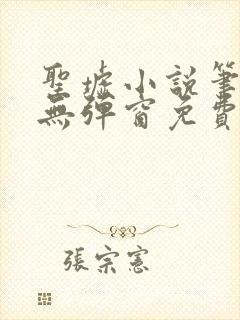 聖墟小説筆
無彈窗免費
張宗憲